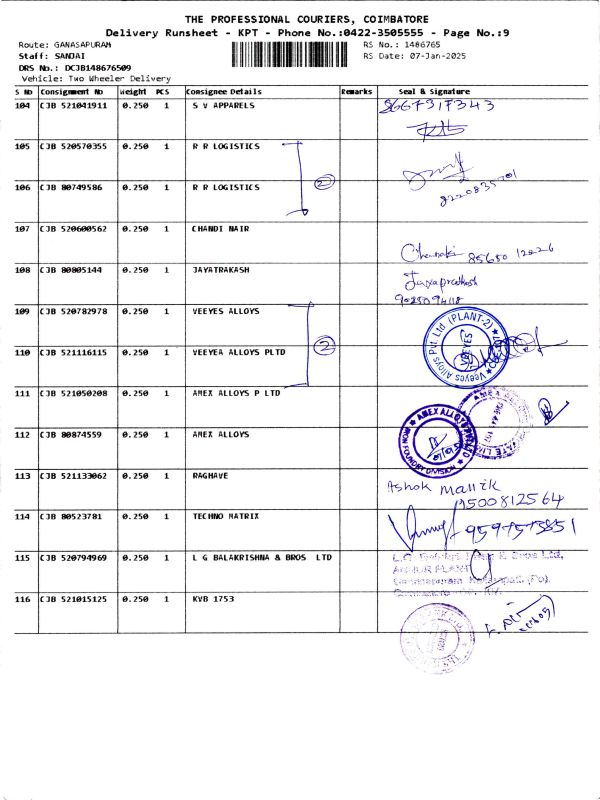 THE PROFESSIONAL COURIERS, COIMBATORE
Delivery Runsheet - KPT - Phone No.:0422-3505555 - Page No.:9
Route: GANASAPURAM RS No.: 1486765
Staff: SANJAI RS Date: 07-Jan-2025
DRS No.: DCJB148676509
Vehicle: Two Wheeler Delivery
S No Consignment No Weight PCS Consignee Details Remarks Seal & Signature
104 CJB 521041911 0.250 1 S V APPARELS 8667317343
105 CJB 520570355 0.250 1 R R LOGISTICS
106 CJB 80749586 0.250 1 R R LOGISTICS 2
107 CJB 520600562 0.250 1 CHANDI NAIR
108 CJB 80805144 0.250 1 JAYATRAKASH Jayaprakash
109 CJB 520782978 0.250 1 VEEYES ALLOYS
110 CJB 521116115 0.250 1 VEEYEA ALLOYS PLTD 2
Veeyes Alloys Pvt Ltd (PLANT-2)
VEEYES
111 CJB 521050208 0.250 1 AMEX ALLOYS P LTD
112 CJB 80874559 0.250 1 AMEX ALLOYS
AMEX ALLOYS
IRON FOUNDRY DIVISION
113 CJB 521133062 0.250 1 RAGHAVE Ashok Mallik
9500812564
114 CJB 80523781 0.250 1 TECHNO MATRIX
115 CJB 520794969 0.250 1 L G BALAKRISHNA & BROS LTD
116 CJB 521015125 0.250 1 KVB 1753